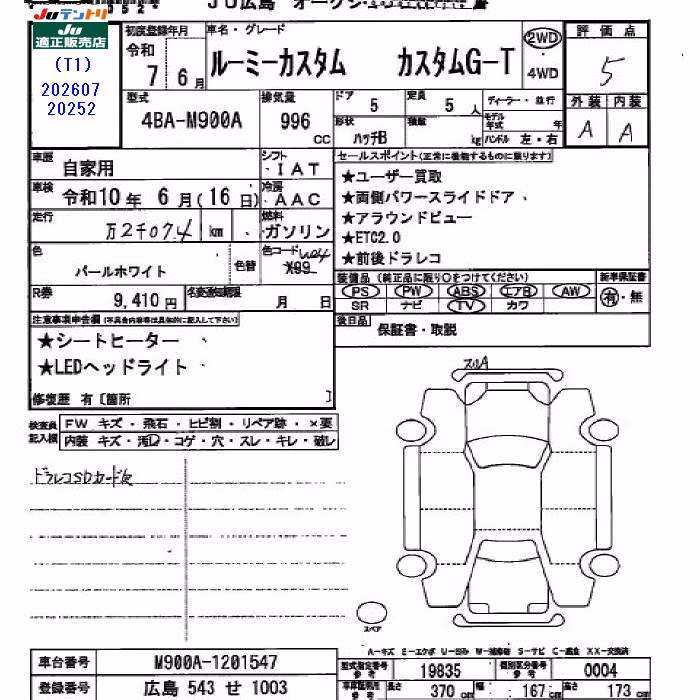 JU広島
Juテントリ
JU
適正販売店
(T1)
202607
20252
初度登録年月
令和
7 6月
車名・グレード
ルーミーカスタム カスタムG-T
2WD
4WD
評価点
5
外装 内装
A A
型式
4BA-M900A
排気量
996
CC
ドア 5
定員 5 人
形状 ハッチB
積載 kg
ディーラー・並行
モデル年式 年
ハンドル 左・右
車歴 自家用
シフト IAT
車検 令和10年 6月(16日)
冷房 AAC
走行 km
燃料 ガソリン
色 パールホワイト
色替
色コード W24
X99
R券 9,410円
名変通知期限 月 日
セールスポイント(正常に機能するものに限ります)
★ユーザー買取
★両側パワースライドドア、
★アラウンドビュー
★ETC2.0
★前後ドラレコ
装備品(純正品に限り○をつけてください)
PS PW ABS エアB AW
SR ナビ TV カワ
新車保証書
有・無
後日品 保証書・取説
注意事項申告欄(不具合内容は具体的に記入して下さい)
★シートヒーター 、
★LEDヘッドライト 、
修復歴 有〔箇所 〕
検査員
記入欄
FW キズ・飛石・ヒビ割・リペア跡・×要
内装 キズ・汚れ・コゲ・穴・スレ・キレ・破レ
ドラレコSDカード欠
スリA
スペア
A-キズ E-エクボ U-凹み W-補修跡 S-サビ C-腐食 XX-交換済
車台番号 M900A-1201547
登録番号 広島 543 せ 1003
型式指定番号 参考 19835
類別区分番号 参考 0004
長さ 370 cm
幅 167 cm
高さ 173 cm